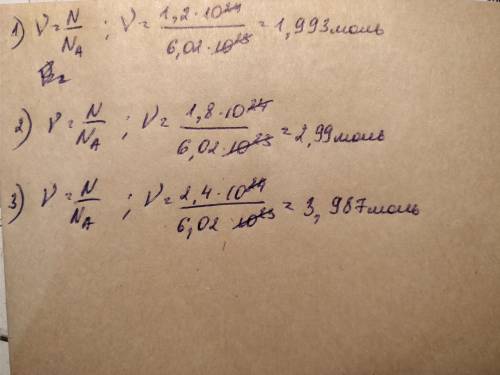 1) ν = N/N_A ; ν = 1,2·10²⁴/6,02·10²³ = 1,993моль
2) ν = N/N_A ; ν = 1,8·10²⁴/6,02·10²³ = 2,99моль
3) ν = N/N_A ; ν = 2,4·10²⁴/6,02 10²³ = 3,987моль